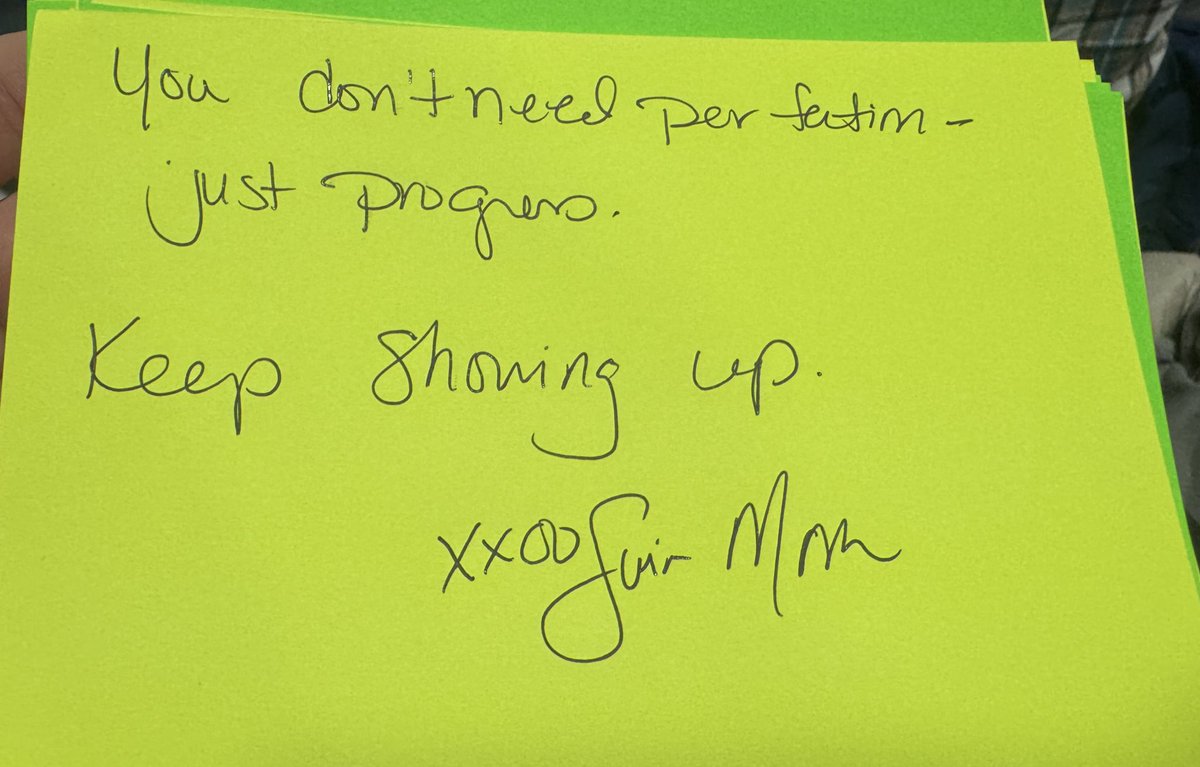 You don't need perfection -
just progress.
Keep showing up.
xxoo